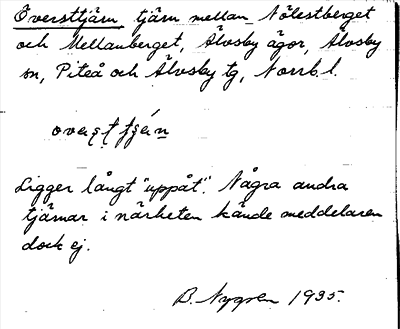 Översttjärn, tjärn mellan Nölestberget
och Mellanberget, Älvsby ägor, Älvsby
sn, Piteå och Älvsby tg, Norrb. l.
overst
Ligger långt "uppåt". Några andra
tjärnar i närheten kände meddelaren
dock ej.
B. Nygren 1935.